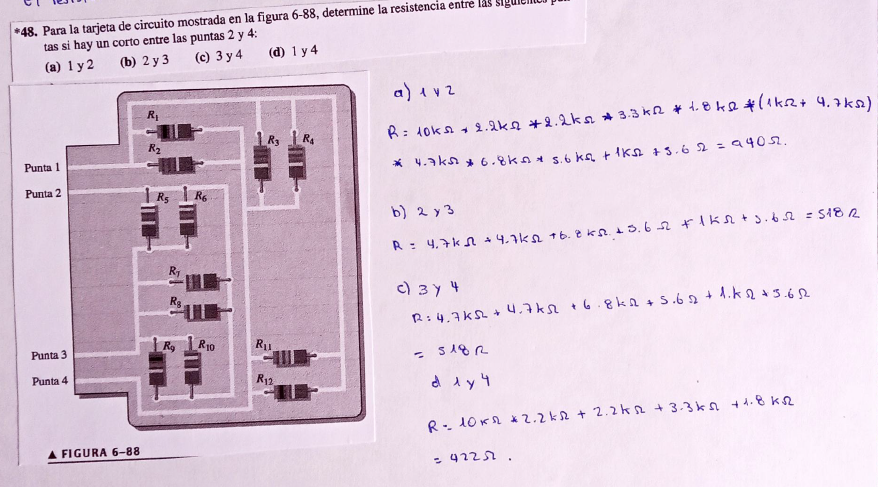 *48. Para la tarjeta de circuito mostrada en la figura 6-88, determine la resistencia entre las
tas si hay un corto entre las puntas 2 y 4:
(a) 1 y 2 (b) 2 y 3 (c) 3 y 4 (d) 1 y 4
R1
R2
R3 R4
Punta 1
Punta 2
R5 R6
R7
R8
Punta 3
R9 R10
R11
Punta 4
R12
▲ FIGURA 6-88
a) 1 y 2
R = 10kΩ + 2.2kΩ * 2.2kΩ * 3.3kΩ * 1.8kΩ * (1kΩ + 4.7kΩ)
* 4.7kΩ * 6.8kΩ * 5.6kΩ + 1kΩ + 5.6Ω = 940Ω.
b) 2 y 3
R = 4.7kΩ + 4.7kΩ + 6.8kΩ + 5.6Ω + 1kΩ + 5.6Ω = 518Ω
c) 3 y 4
R: 4.7kΩ + 4.7kΩ + 6.8kΩ + 5.6Ω + 1.kΩ + 5.6Ω
= 518Ω
d 1 y 4
R = 10kΩ * 2.2kΩ + 2.2kΩ + 3.3kΩ + 1.8kΩ
= 422Ω.